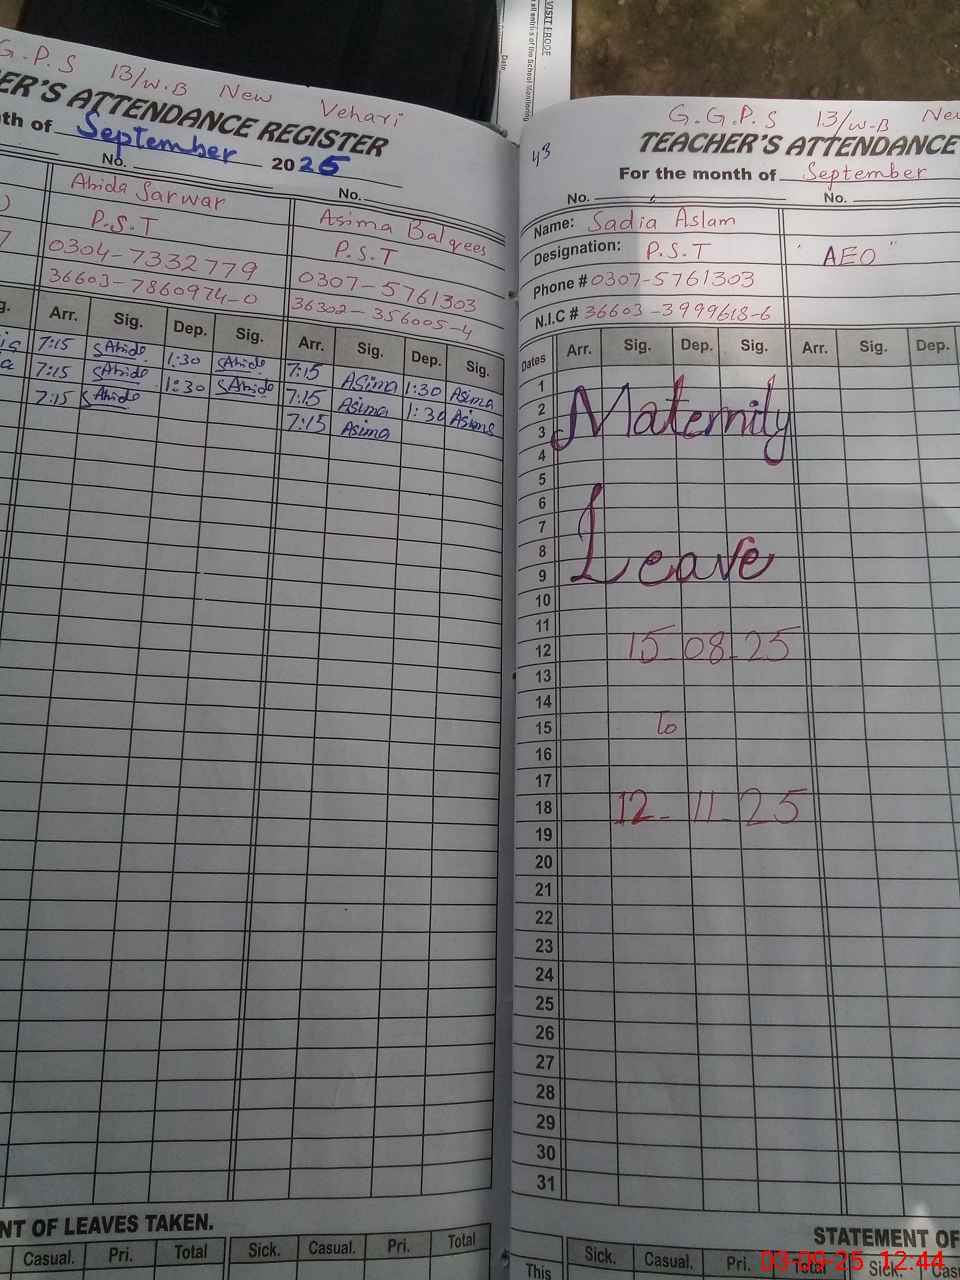 VISIT PROOF
all entries of the School Monitoring
Date
G.P.S 13/W.B New Vehari
ER'S ATTENDANCE REGISTER
th of September 2025
No. No.
Abida Sarwar
P.S.T
0304-7332779
36603-7860974-0
Asima Balqees
P.S.T
0307-5761303
36302-356005-4
g. Arr. Sig. Dep. Sig. Arr. Sig. Dep. Sig.
7:15 SAbida 1:30 SAbida 7:15 Asima 1:30 Asima
7:15 SAbida 1:30 SAbida 7:15 Asima 1:30 Asima
7:15 SAbida 7:15 Asima
NT OF LEAVES TAKEN.
Casual. Pri. Total Sick. Casual. Pri. Total
43
G.G.P.S 13/W-B New
TEACHER'S ATTENDANCE
For the month of September
No. No.
Name: Sadia Aslam
Designation: P.S.T "AEO"
Phone # 0307-5761303
N.I.C # 36603-3999618-6
Dates Arr. Sig. Dep. Sig. Arr. Sig. Dep.
1
2
3
Maternity
4
5
6
7
8
9
Leave
10
11
12
15-08-25
13
14
15
To
16
17
18
12-11-25
19
20
21
22
23
24
25
26
27
28
29
30
31
STATEMENT OF
This Sick. Casual. Pri. Total Sick. Cas
03-09-25 12:44